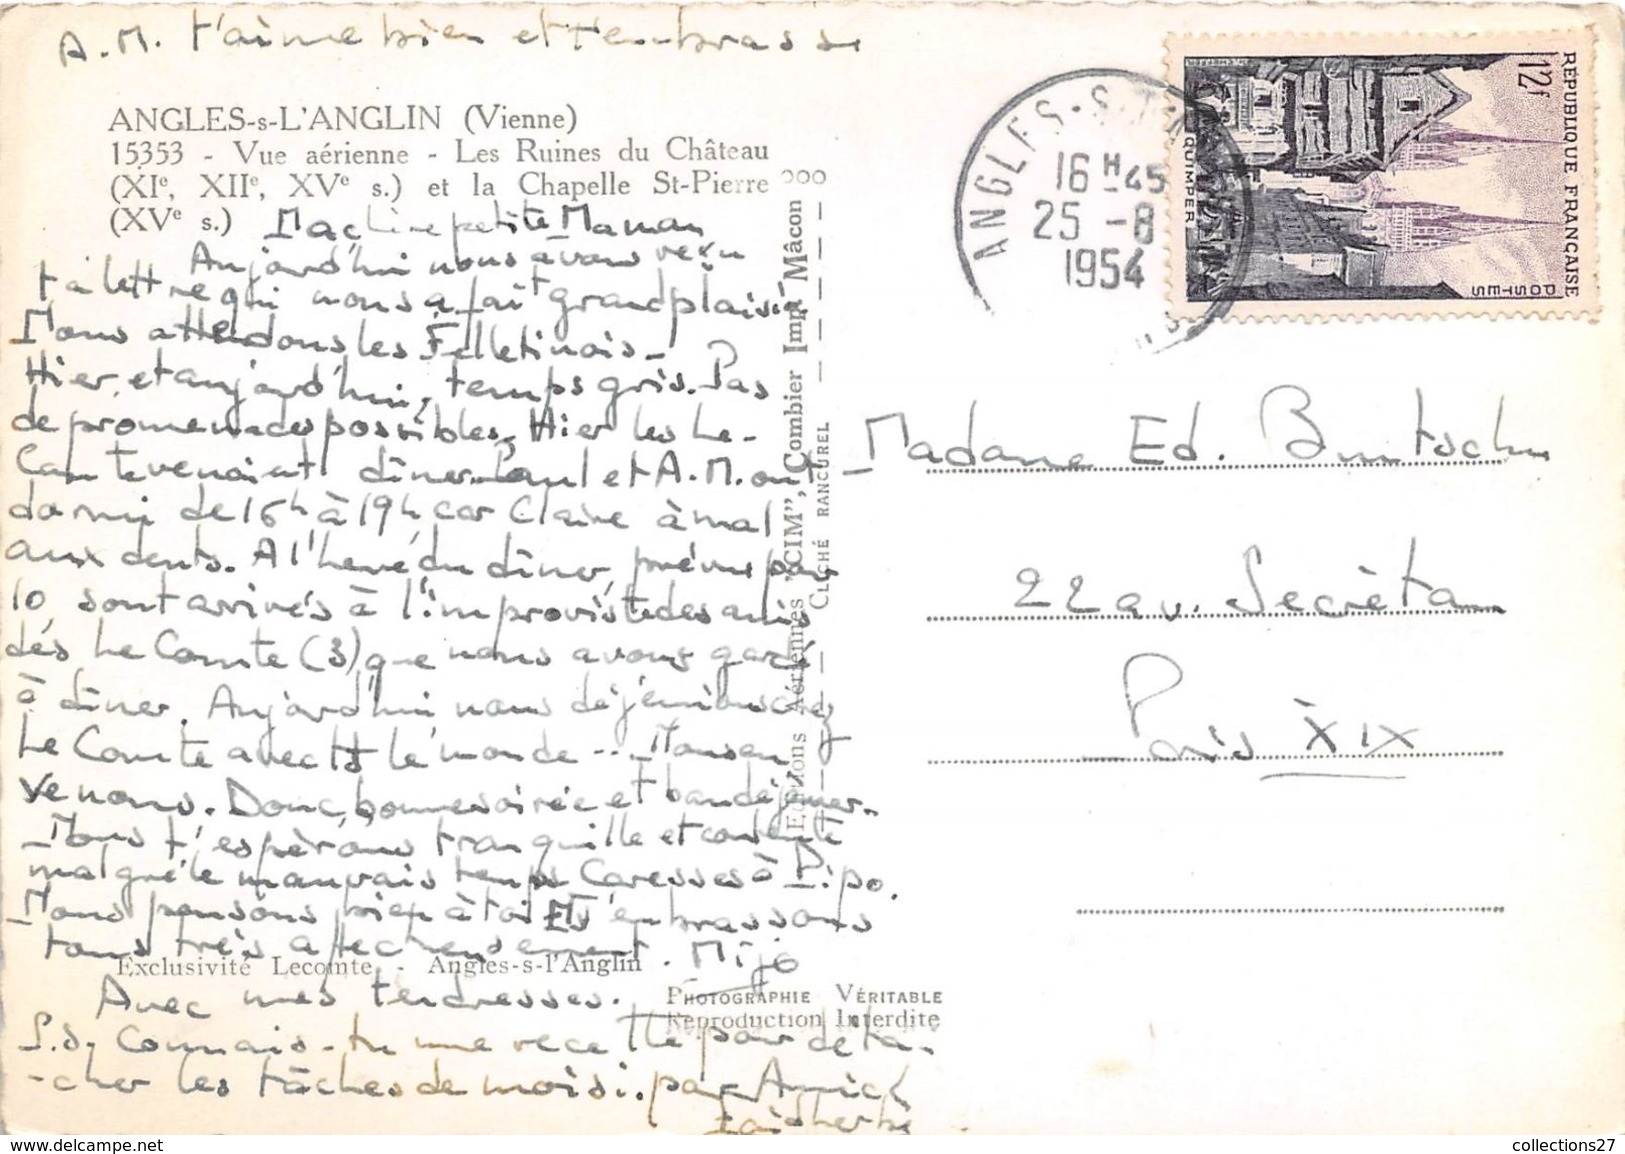 A.M. t'aime bien et t'embrasse
ANGLES-s-L'ANGLIN (Vienne)
15353 - Vue aérienne - Les Ruines du Château
(XIe, XIIe, XVe s.) et la Chapelle St-Pierre
(XVe s.)
Ma chère petite Maman
Aujourd'hui nous avons reçu
ta lettre qui nous a fait grand plaisir
Nous attendons les Felletinois -
Hier, et aujourd'hui, temps gris. Pas
de promenades possibles. Hier les Le-
Comte venaient dîner. Paul et A.M. ont
dormi de 16h à 19h, car Claire à mal
aux dents. A l'heure du dîner, prévu pour
10 sont arrivés à l'improviste des amis
des Le Comte (3) que nous avons gardé
à dîner. Aujourd'hui nous déjeunions chez
Le Comte avec tt le monde -- Nous en
venons. Donc, bonne soirée et bon déjeuner.
Nous t'espérons tranquille et contente
malgré le mauvais temps Caresses à Pipo.
Nous pensons bien à toi Et t'embrassons
tous très affectueusement. Mijo
Exclusivité Lecomte - Angles-s-l'Anglin
Avec mes tendresses.
PHOTOGRAPHIE VÉRITABLE
Reproduction Interdite
Connais-tu une recette pour déta-
-cher les tâches de moisi. par Annick
Editions Aériennes "CIM", Combier Imp. Mâcon
CLICHÉ RANCUREL
ANGLES-S
16H45
25 -8
1954
RÉPUBLIQUE FRANÇAISE
12f
POSTES
QUIMPER
Madame Ed.
22 av. Secrétan
Paris XIX
collections27